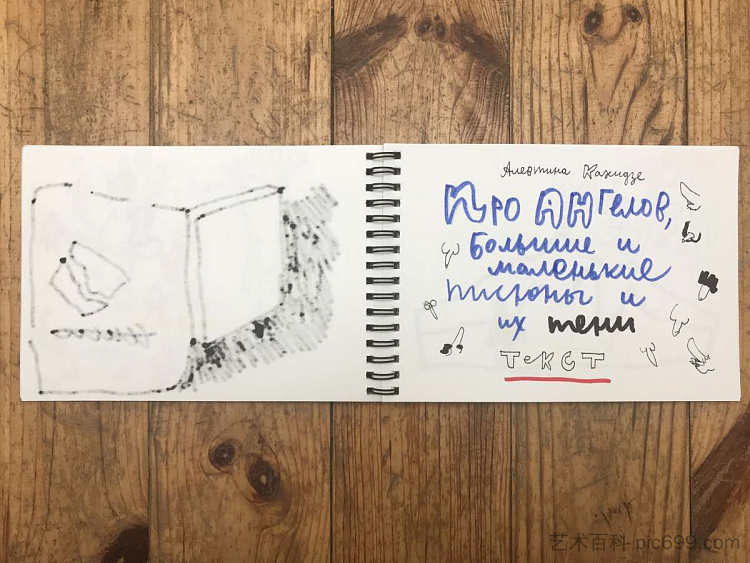 Алевтина Кахидзе
Про АНгелов,
большие и
маленькие
писюны и
их тени
ТеКСТ
艺术百科 pic699.com